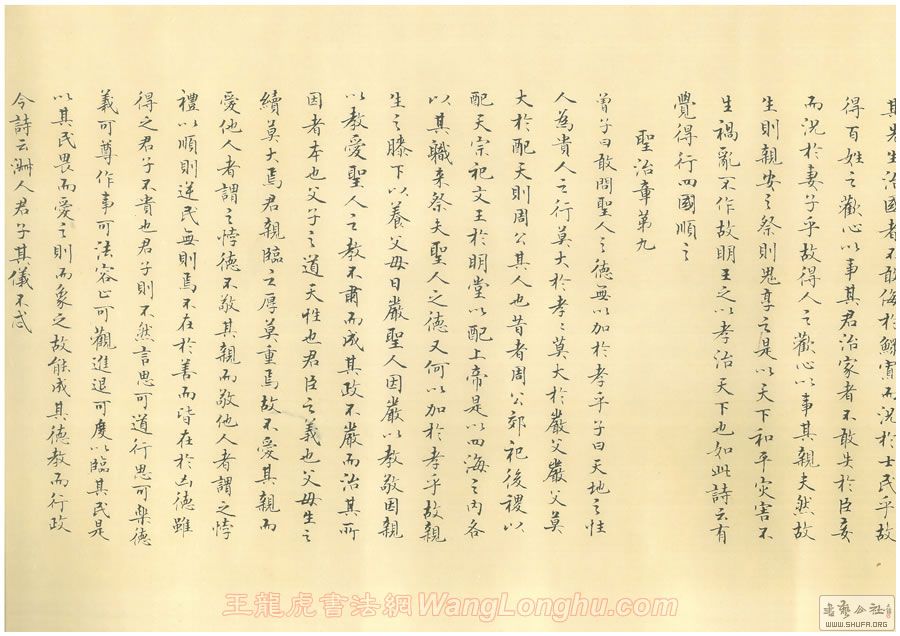 其先王治國者不敢侮於鰥寡而況於士民乎故
得百姓之歡心以事其君治家者不敢失於臣妾
而況於妻子乎故得人之歡心以事其親夫然故
生則親安之祭則鬼享之是以天下和平灾害不
生禍亂不作故明王之以孝治天下也如此詩云有
覺得行四國順之
聖治章第九
曾子曰敢問聖人之德無以加於孝乎子曰天地之性
人為貴人之行莫大於孝〻莫大於嚴父嚴父莫
大於配天則周公其人也昔者周公郊祀後稷以
配天宗祀文王於明堂以配上帝是以四海之內各
以其職来祭夫聖人之德又何以加於孝乎故親
生之膝下以養父毋日嚴聖人因嚴以教敬因親
以教愛聖人之教不肅而成其政不嚴而治其所
因者本也父子之道天性也君臣之義也父毋生之
續莫大焉君親臨之厚莫重焉故不愛其親而
愛他人者謂之悖德不敬其親而敬他人者謂之悖
禮以順則逆民無則焉不在於善而皆在於凶德雖
得之君子不貴也君子則不然言思可道行思可樂德
義可尊作事可法容止可觀進退可度以臨其民是
以其民畏而愛之則而象之故能成其德教而行政
令詩云淑人君子其儀不忒
王龍虎書法網WangLonghu.com
書藝公社
WWW.SHUFA.ORG